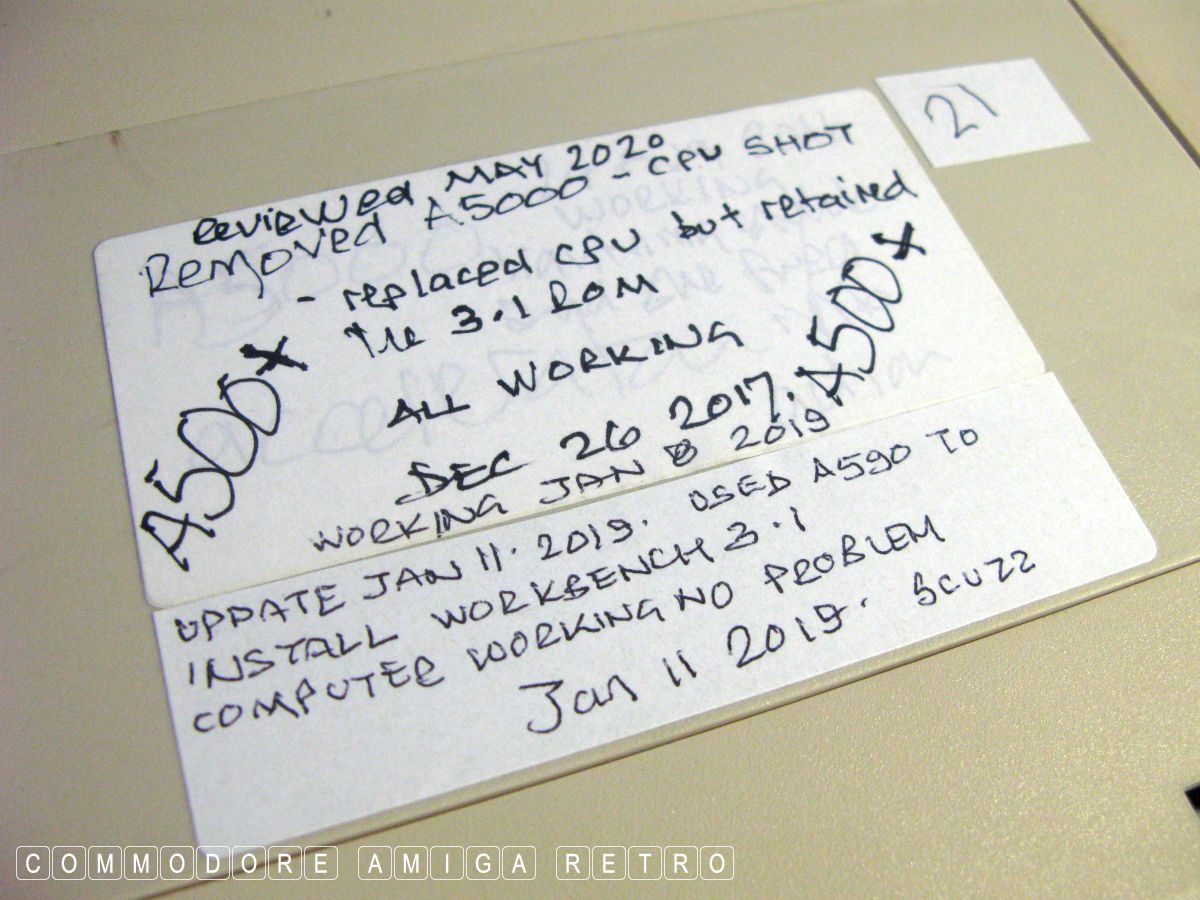 Reviewed MAY 2020
Removed A5000 - CPU SHOT
- replaced CPU but retained
the 3.1 ROM
ALL WORKING
DEC 26 2017.
A500x
A500x
WORKING JAN 8 2019
UPDATE JAN 11. 2019. USED A590 TO
INSTALL WORKBENCH 3.1
COMPUTER WORKING NO PROBLEM
Jan 11 2019. SCUZZ
21
COMMODORE AMIGA RETRO